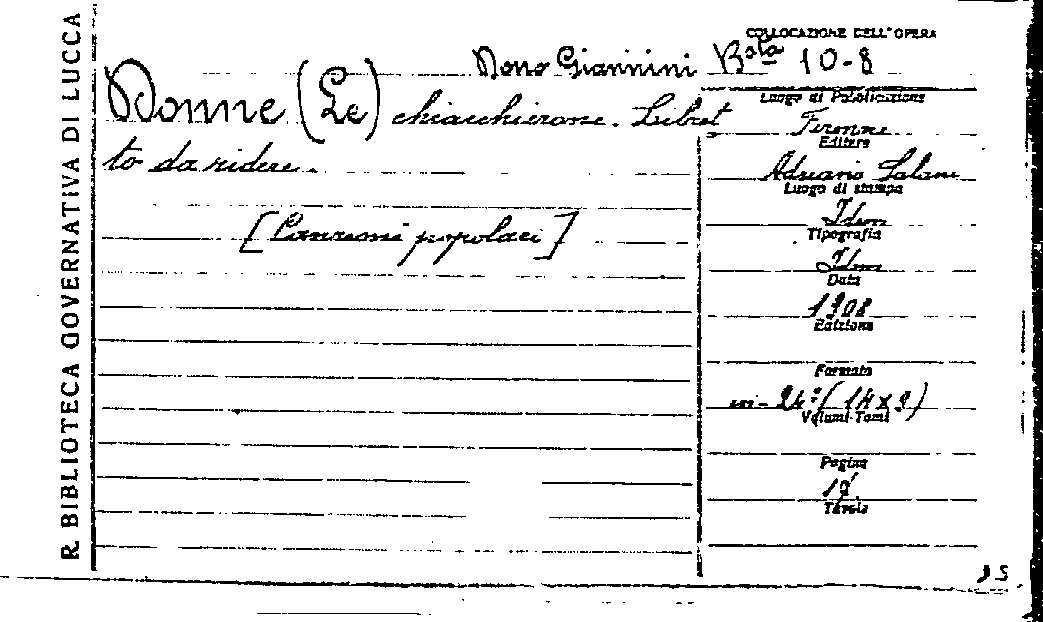 R. BIBLIOTECA GOVERNATIVA DI LUCCA
COLLOCAZIONE DELL'OPERA
Dono Giannini Bsta 10-8
Donne (Le) chiacchierone. Libret
to da ridere.
[Canzoni popolari]
Luogo di Pubblicazione
Firenze
Editore
Adriano Salani
Luogo di stampa
Idem
Tipografia
Idem
Data
1908
Edizione
Formato
in-24º (14x9)
Volumi-Tomi
Pagine
Tavole